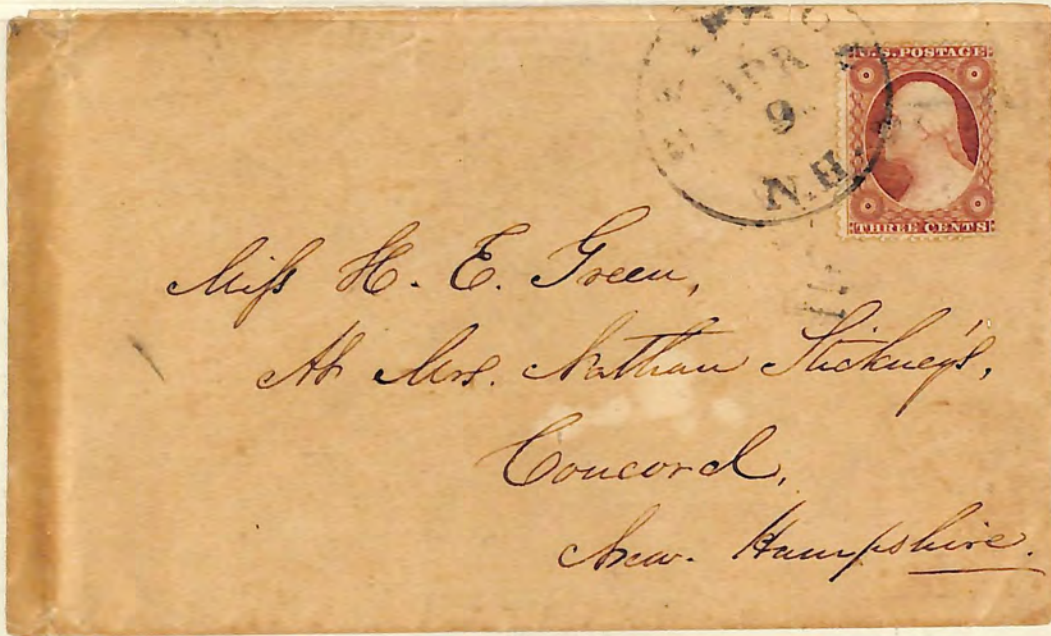 U.S. POSTAGE
APR
9
N.H.
THREE CENTS
Miss H. E. Green,
At Mrs. Nathan Stickney's,
Concord,
New. Hampshire.